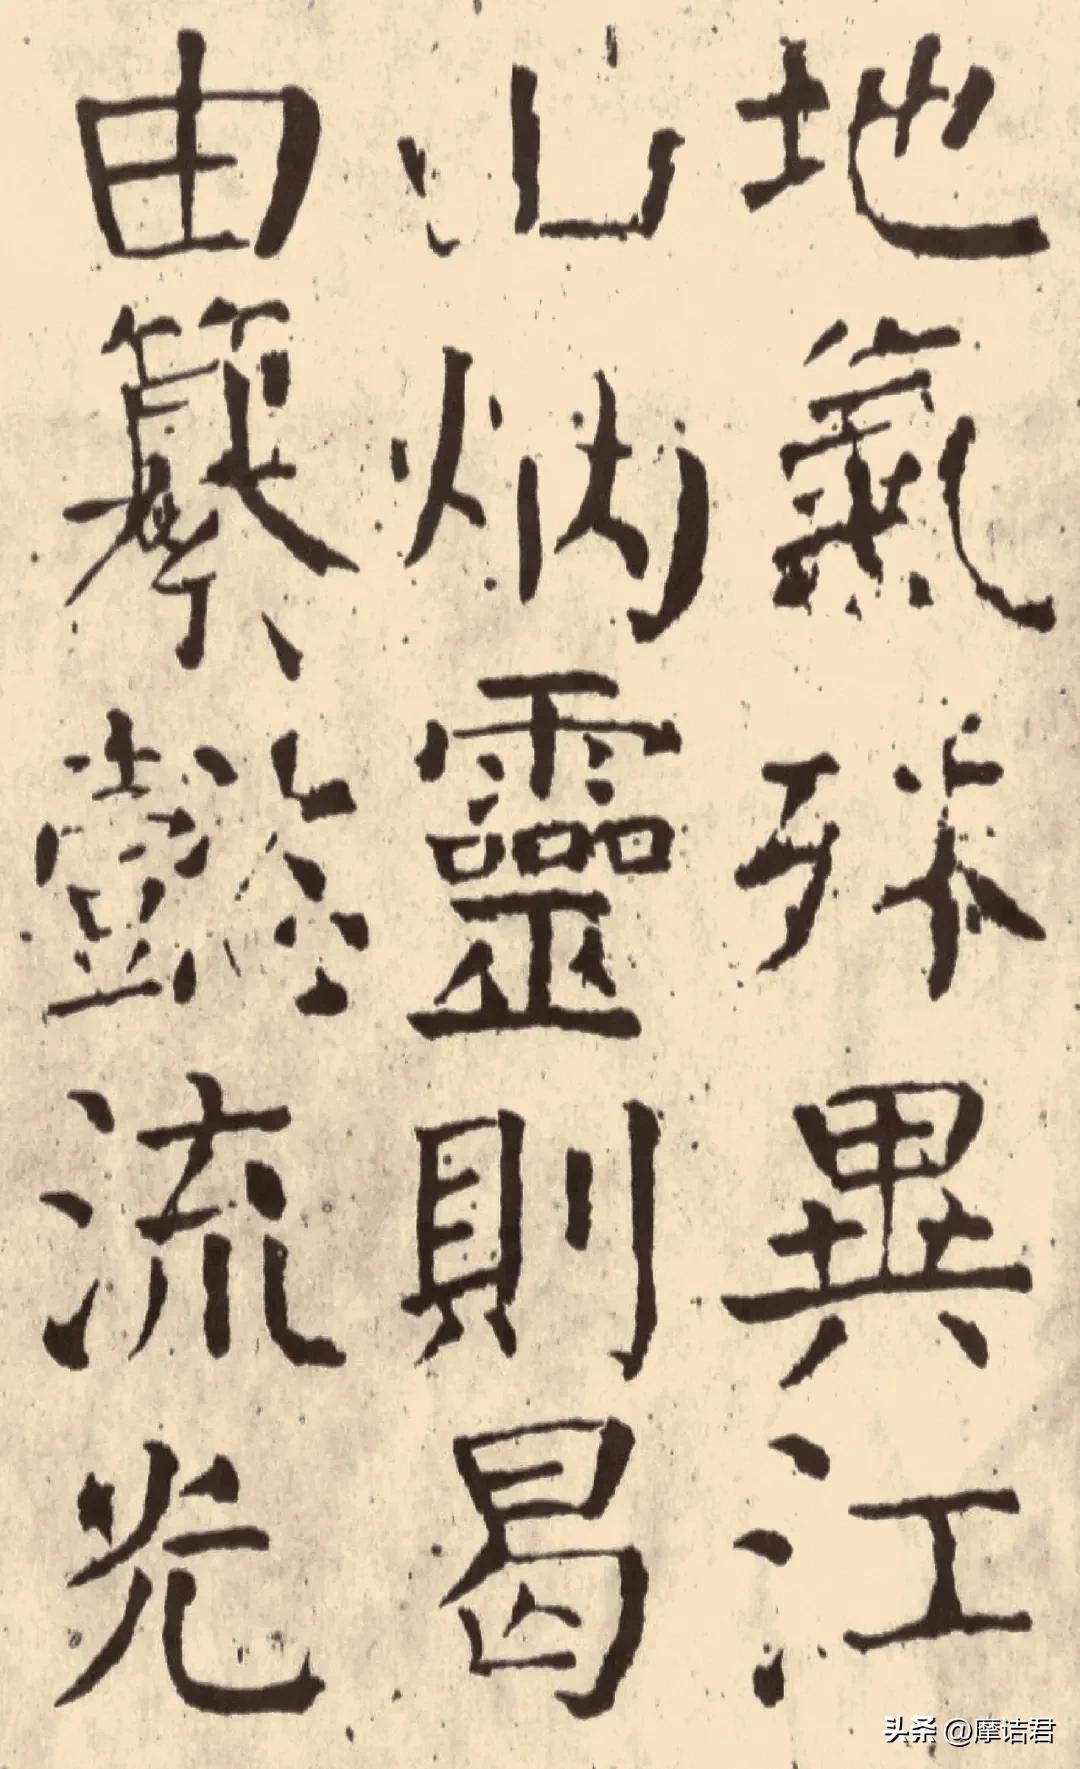 地氣殊異江
山炳靈則曷
由纂懿流光
头条 @摩诘君